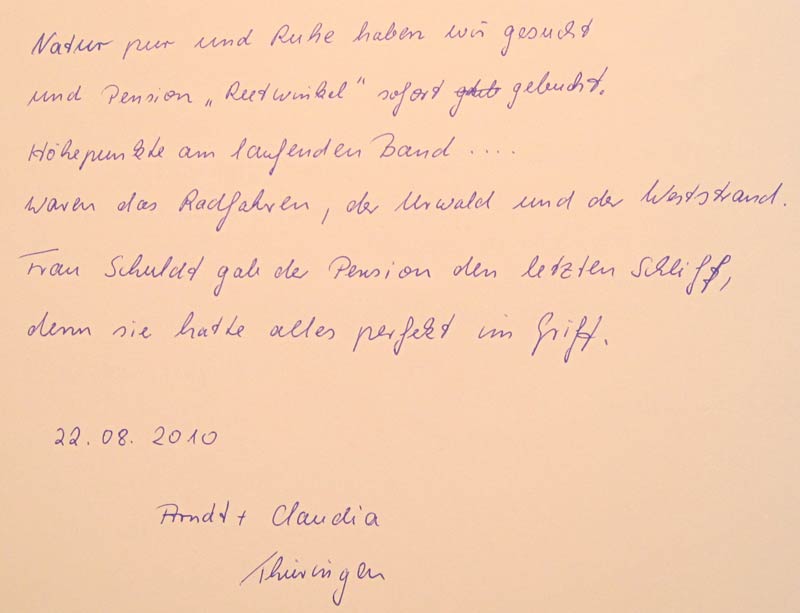 Natur pur und Ruhe haben wir gesucht
und Pension „Reetwinkel“ sofort gebucht.
Höhepunkte am laufenden Band ....
waren das Radfahren, der Urwald und der Weststrand.
Frau Schuldt gab der Pension den letzten Schliff,
denn sie hatte alles perfekt im Griff.
22.08. 2010
Arndt + Claudia
Thüringen